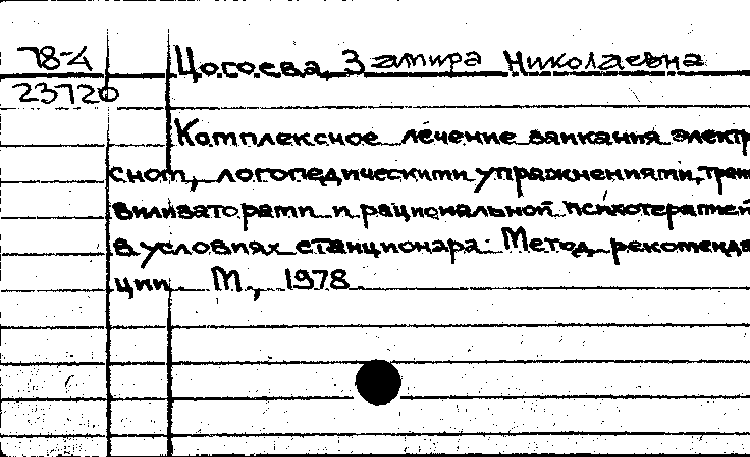 78-4
23720
Цогоева, Замира Николаевна
Комплексное лечение заикания электр
сном, логопедическими упражнениями, тран
вилизаторами и рациональной психотерапией
в условиях стационара: Метод. рекоменда
ции. М., 1978.